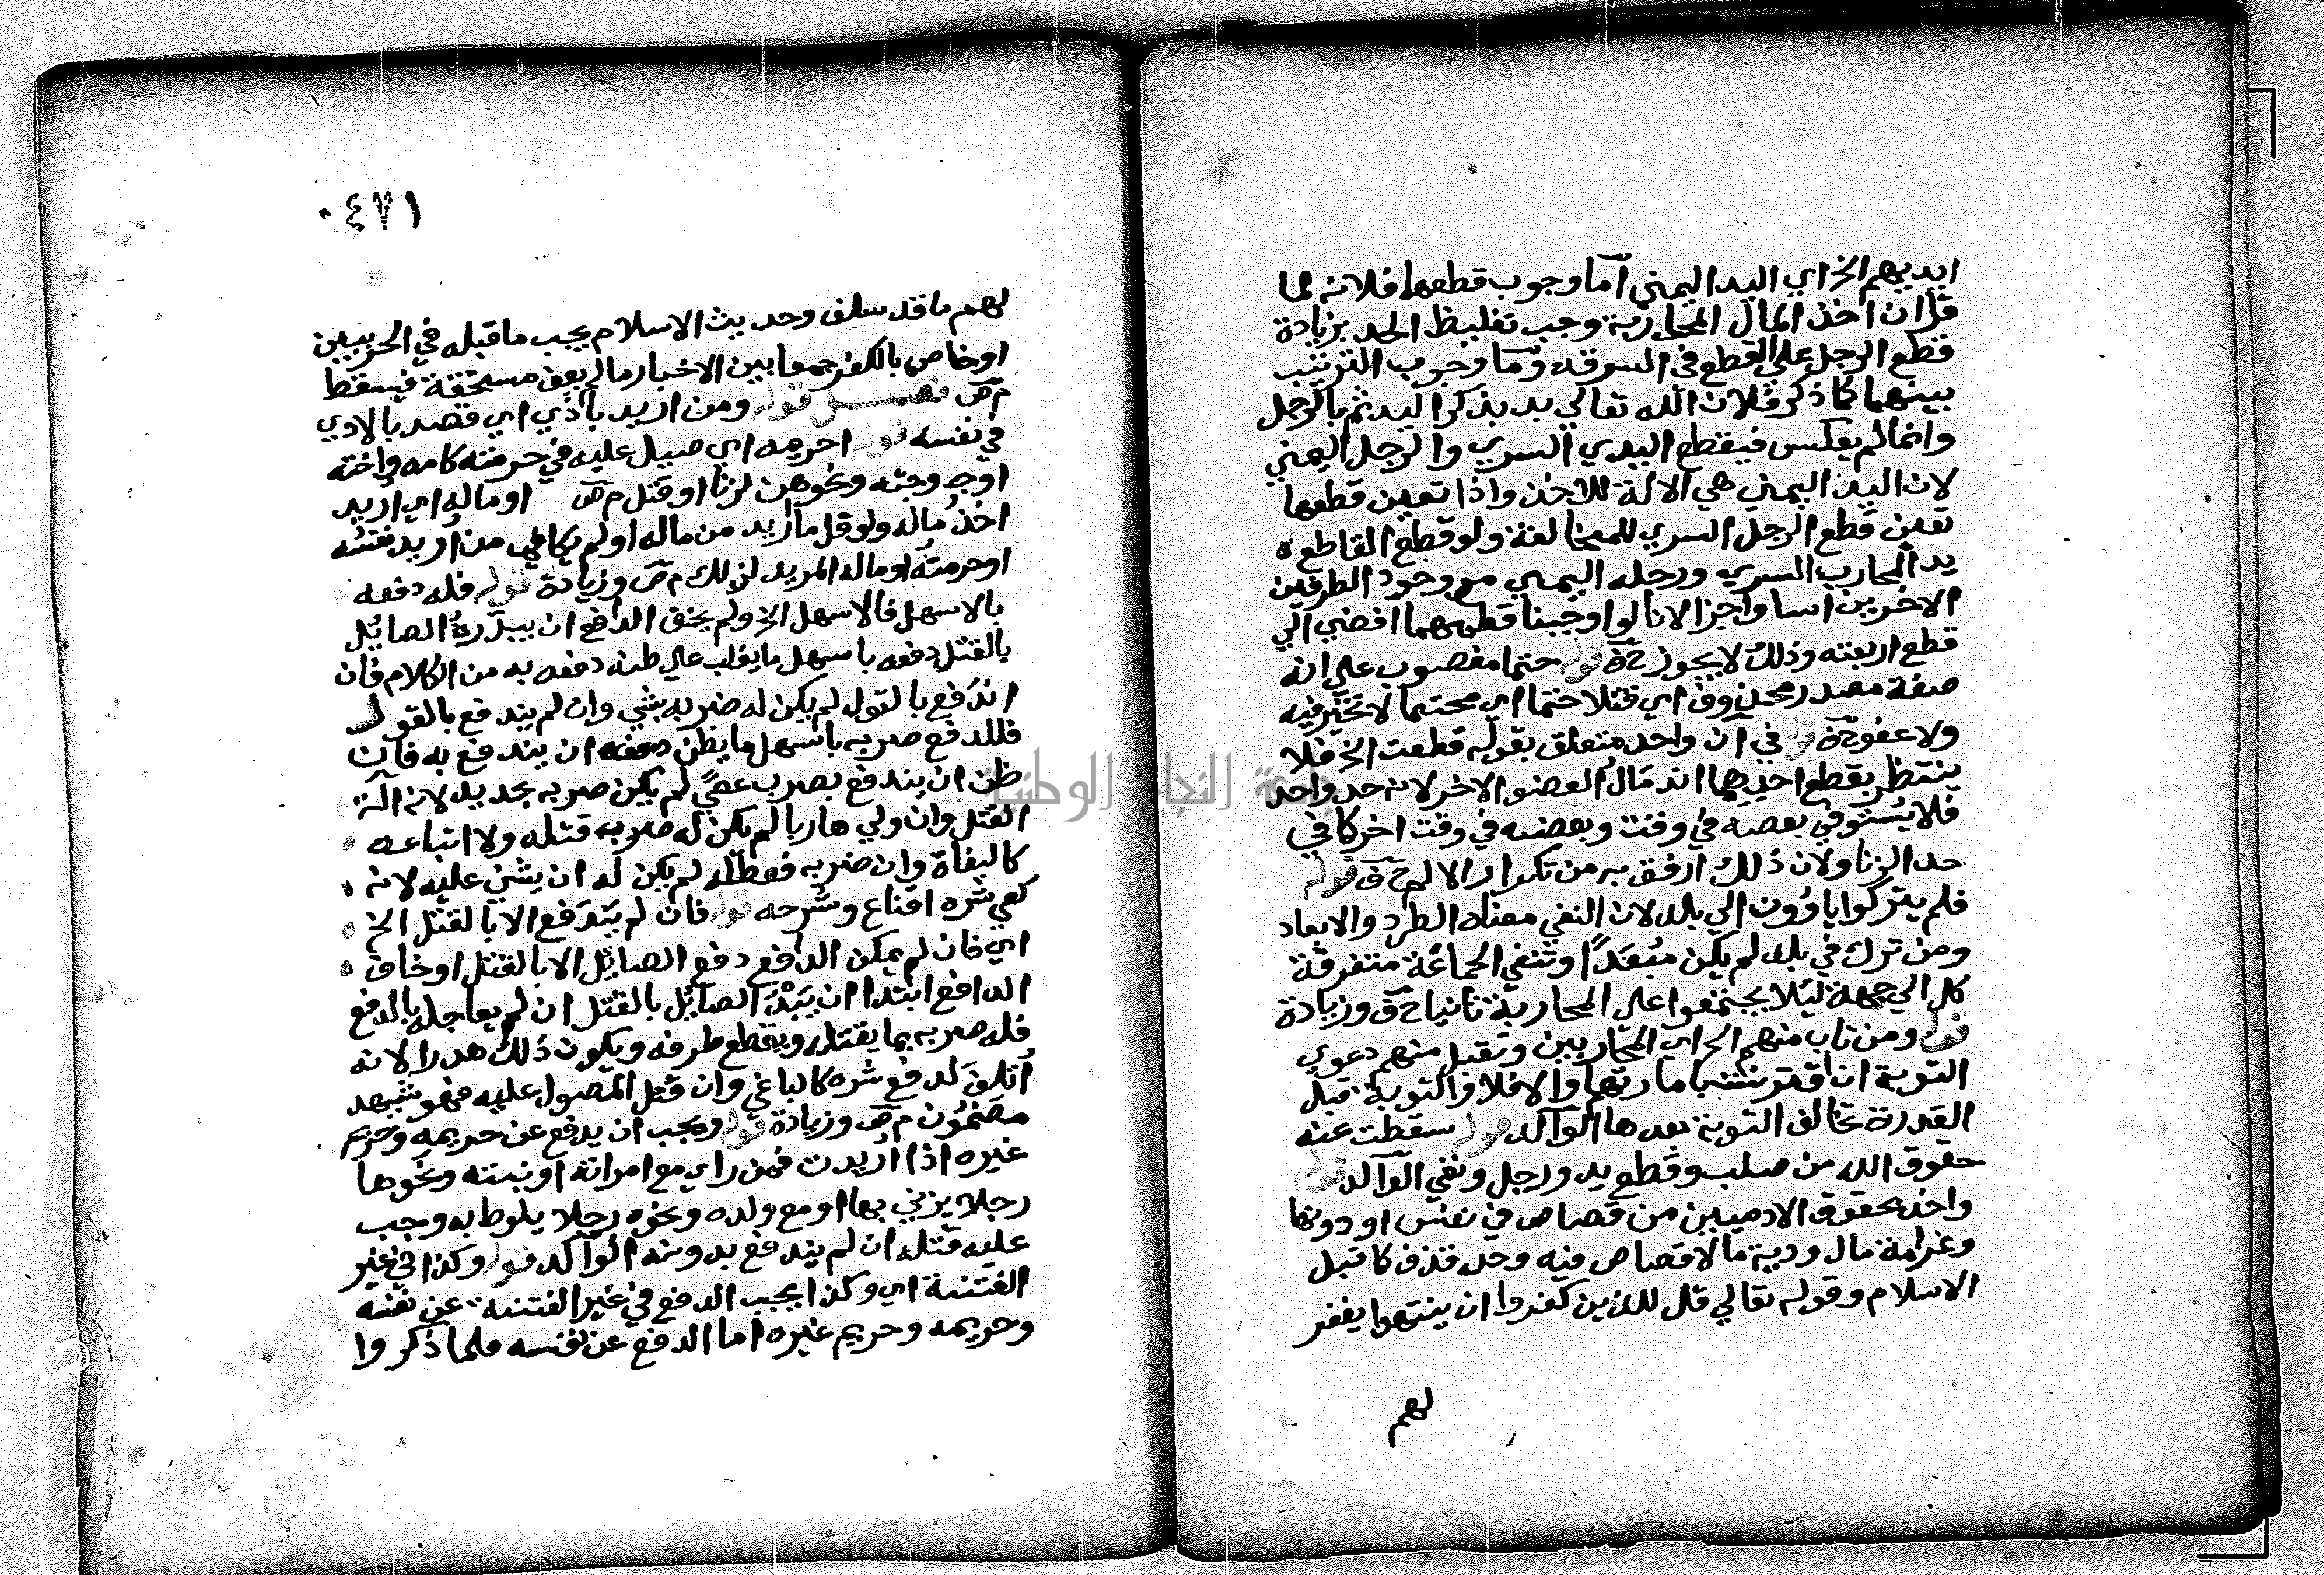 ايديهم الخ اي اليد اليمني اما وجوب قطعها فلانه لما
قرأ ان اخذ المال المحاربة وجب تغليظ الحد بزيادة
قطع الرجل علي القطع في السرقه وما وجوب الترتيب
بينهما كما ذكر فلان الله تعالي بد بذكر اليد ثم بالرجل
وانما لم يعكس فيقطع اليدي السري والرجل اليمني
لان اليد اليمني هي الالة للاخذ واذا تعين قطعها
تعين قطع الرجل السري للمخالفة ولو قطع القاطع
يد المحارب السري ورجله اليمني مع وجود الطرفين
الاخرين اسا واجزا لانا لو اوجبنا قطعهما افضي الي
قطع اربعته وذلك لا يجوز قوله حتما منصوب علي انه
صفة مصدر محذوف اي قتلا حتما اي محتما لا تخير فيه
ولا عفو قوله في ان واحد متعلق بقوله قطعت الخ فلا
ينتظر بقطع احديهما اندمال العضو الاخر لانه حد واحد
فلا يستوفي بعضه في وقت وبعضه في وقت اخر كما في
حد الزنا ولان ذلك ارفق به من تكرار الالم ح ف قوله
فلم يتركوا ياوون الي بلد لان النفي معناه الطرد والابعاد
ومن ترك في بلد لم يكن مبعدا وتنفي الجماعة متفرقة
كل الي جهة ليلا يجتمعوا علي المحاربة ثانيا ح ف وزيادة
قوله ومن تاب منهم الخ اي المحاربين وتقبل منهم دعوي
التوبة ان اقترنت بامارتها والا فلا فالتوبة قبل
القدرة تخالف التوبة بعدها الوالد قوله سقطت عنه
حقوق الله من صلب وقطع يد ورجل ونفي الوالد قوله
واخذ بحقوق الادميين من قصاص في نفس او دونها
وغرامة مال ودية مالا قصاص فيه وحد قذف كما قبل
الاسلام وقوله تعالي قل للذين كفروا ان ينتهوا يغفر
لهم
٠٤٧١
لهم ما قد سلف وحديث الاسلام يجب ما قبله في الحربيين
او خاص بالكفر جمعا بين الاخبار مالم يعف مستحقة فيسقط
م ص فصل قوله ومن اريد باذي اي قصد بالاذي
في نفسه قوله احريمه اي صيل عليه في حرمته كامه واخته
اوجه وجته ونحوهن لزنا او قتل م ص او ماله اي اريد
اخذ ماله ولو قل ما اريد من ماله او لم يكافي من اريد نفسه
او حرمته او ماله المريد لذلك م ص وزيادة قوله فله دفعه
بالاسهل فالاسهل الخ ولم يخف الدافع ان يبدره الصايل
بالقتل دفعه باسهل ما يغلب علي ظنه دفعه به من الكلام فان
اندفع بالقول لم يكن له ضربه بشي وان لم يندفع بالقول
فللدفع ضربه باسهل ما يظن دفعه ان يندفع به فان
ظن ان يندفع بضرب عصي لم يكن ضربه بحديد لانه الة
القتل وان ولي هاربا لم يكن له ضربه قتله ولا اتباعه
كالبغاة وان ضربه فعطله لم يكن له ان يثني عليه لانه
كفي شره اقناع وشرحه قوله فان لم يندفع الا بالقتل الخ
اي فان لم يمكن الدافع دفع الصايل الا بالقتل او خاف
الدافع ابتدا ان يبدر الصايل بالقتل ان لم يعاجله بالدفع
فله ضربه بما يقتله ويقطع طرفه ويكون ذلك هدرا لانه
اتلف لدفع شره كالباغي وان قتل المصول عليه فهو شهيد
مضمون م ص وزيادة قوله ويجب ان يدفع عن حريمه وحريم
غيره اذا اريدت فمن راي مع امراته او بنته ونحوها
رجلا يزني بها او مع ولده ونحوه رجلا يلوط به وجب
عليه قتله ان لم يندفع بدونه الوالد قوله وكذا في غير
الفتنة اي وكذا يجب الدفع في غير الفتنة عن نفسه
وحريمه وحريم غيره اما الدفع عن نفسه فلما ذكروا
جامعة النجاح الوطنية